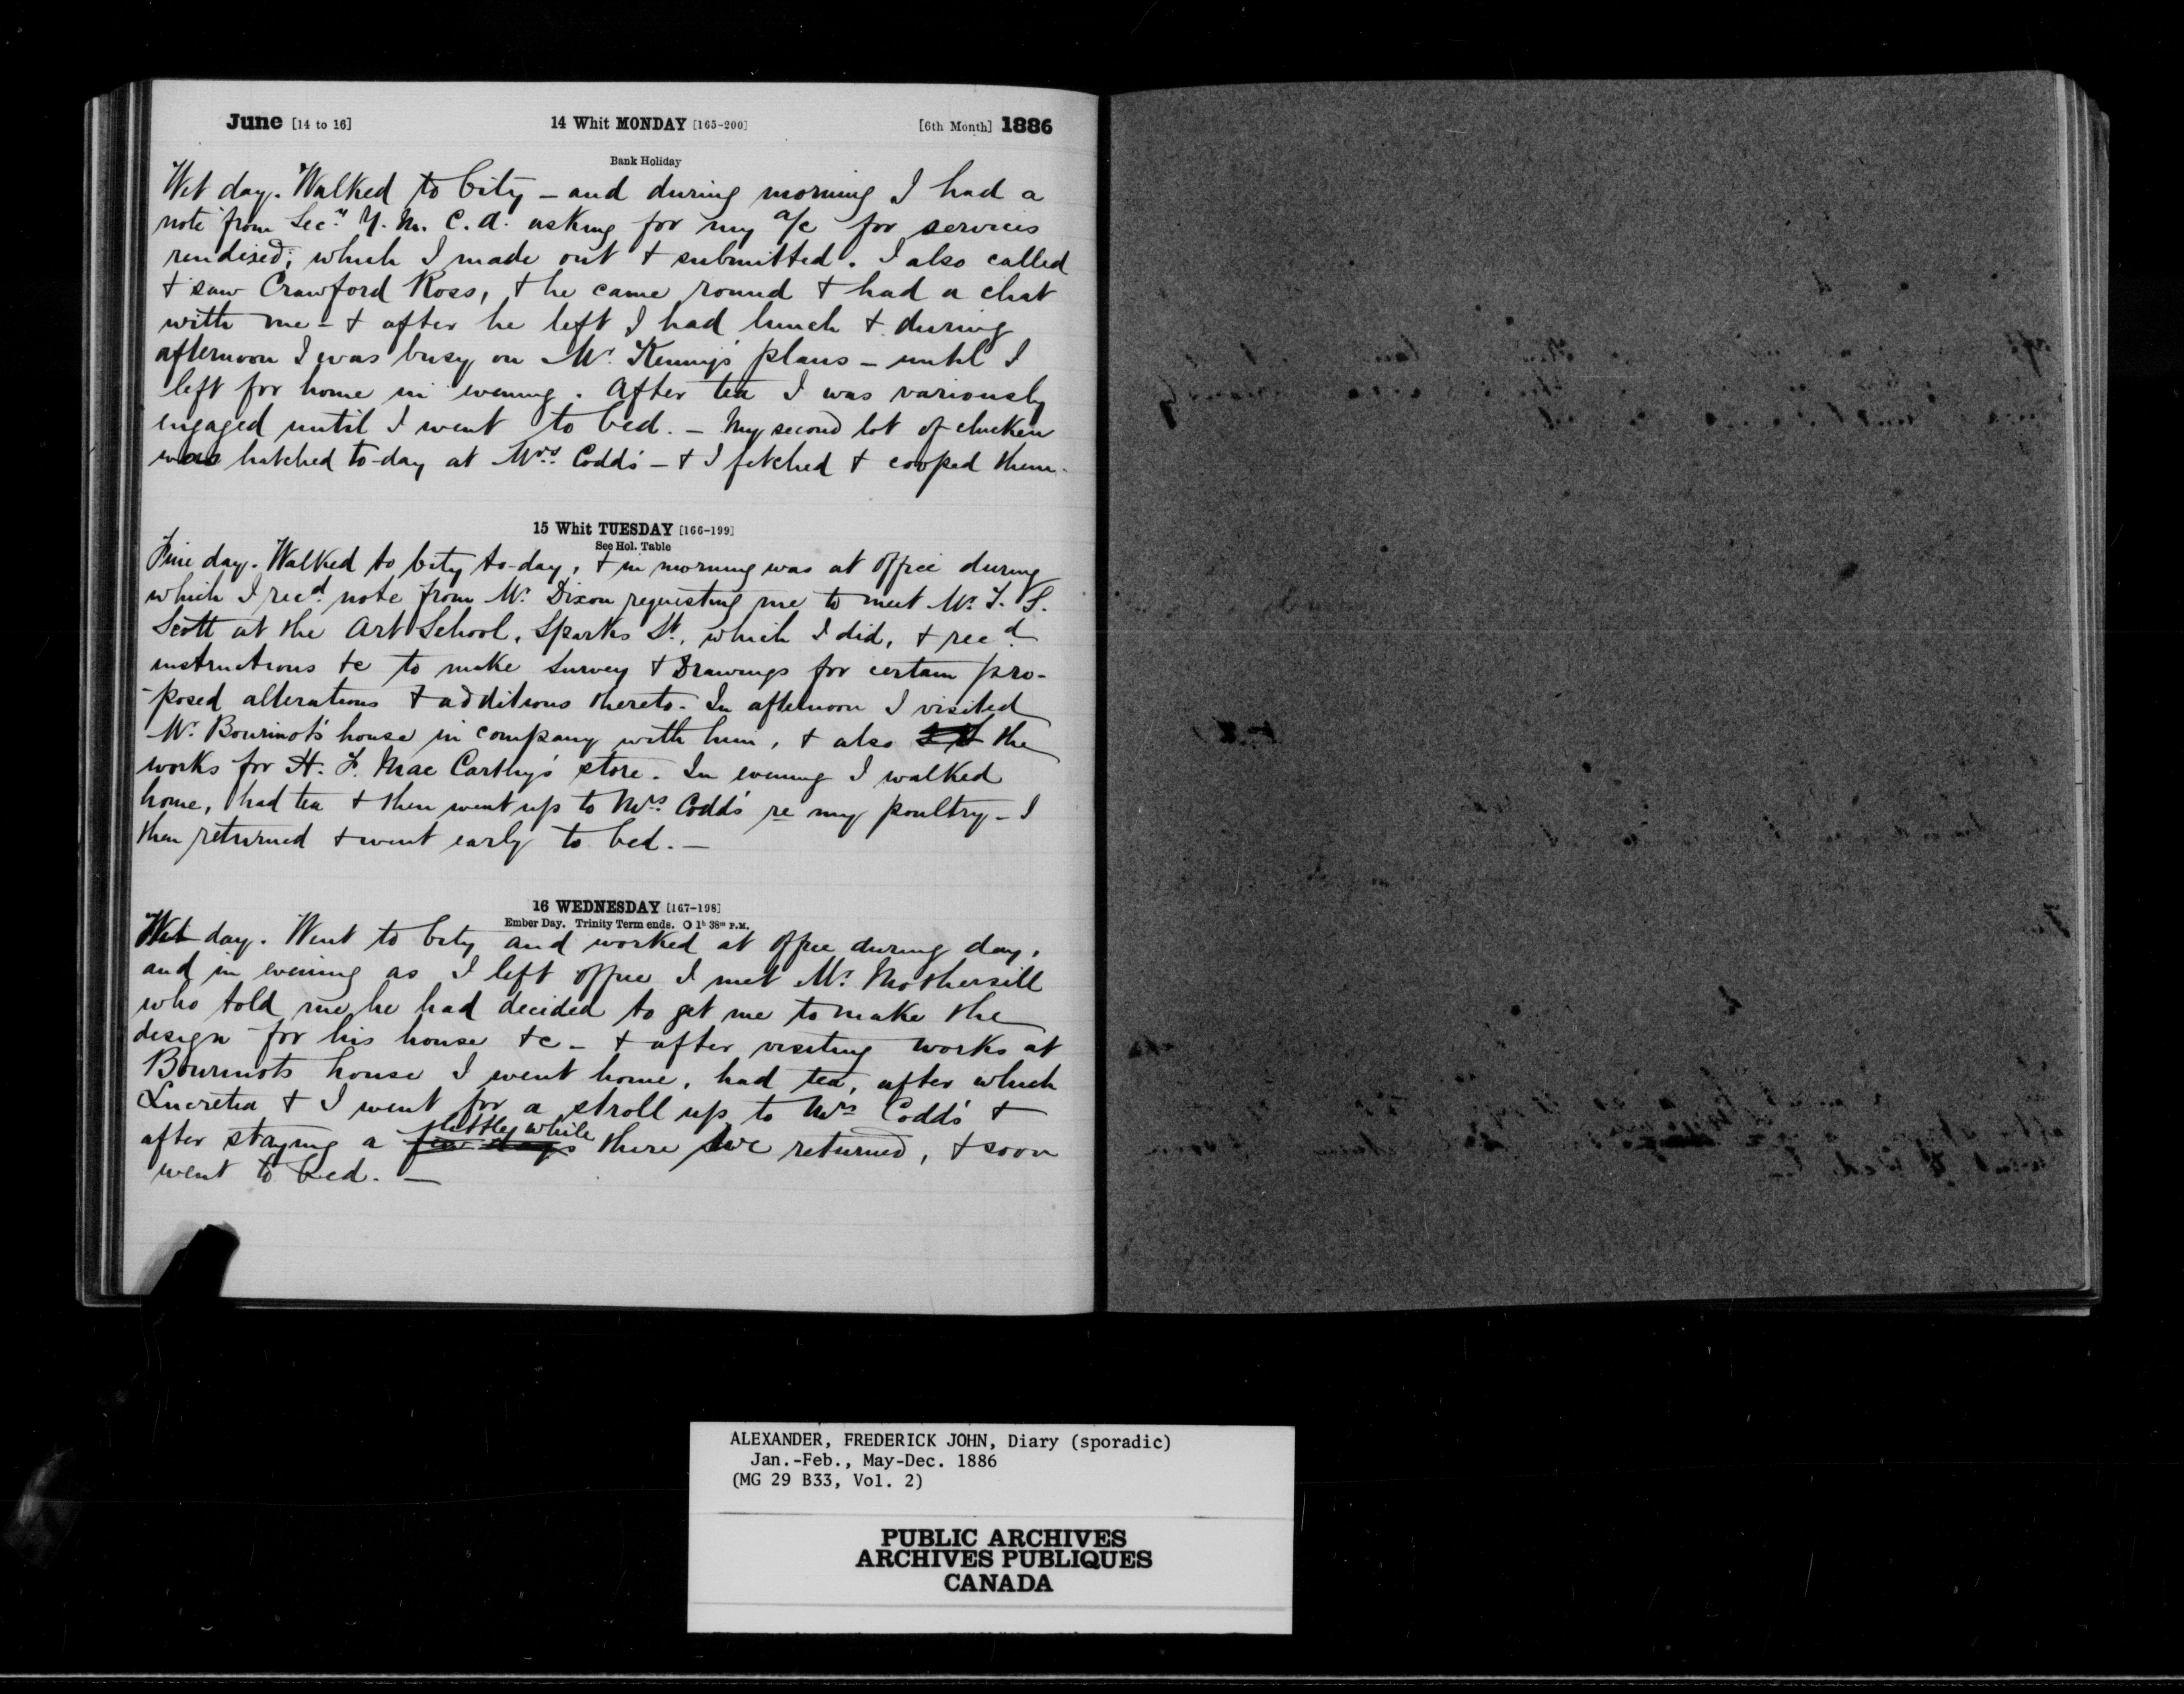 June [14 to 16] 14 Whit MONDAY [165-200] [6th Month] 1886
Bank Holiday
Wet day. Walked to City – and during morning I had a
note from Secy. Y. M. C. A. asking for my a/c for services
rendered; which I made out & submitted. I also called
& saw Crawford Ross, & he came round & had a chat
with me – & after he left I had lunch & during
afternoon I was busy on Mr. Kenny's plans – until I
left for home in evening. After tea I was variously
engaged until I went to bed. – My second lot of chicken
was hatched to-day at Mrs. Codd's – & I fetched & cooped them.
15 Whit TUESDAY [166-199]
See Hol. Table
Fine day. Walked to City to-day, & in morning was at office during
which I recd. note from Mr. Dixon requesting me to meet Mr. T. S.
Scott at the Art School, Sparks St., which I did, & recd.
instructions &c to make Survey & Drawings for certain pro-
-posed alterations & additions thereto. In afternoon I visited
Mr. Bourinot's house in company with him, & also the
works for H. F. Mac Carthy's store. In evening I walked
home, had tea & then went up to Mrs. Codd's re my poultry – I
then returned & went early to bed. –
16 WEDNESDAY [167-198]
Ember Day. Trinity Term ends. O 1h 38m P.M.
Wet day. Went to City and worked at office during day,
and in evening as I left office I met Mr. Mothersill
who told me he had decided to get me to make the
design for his house &c – & after visiting works at
Bourinots house I went home, had tea, after which
Lucretia & I went for a stroll up to Mrs Codd's &
little while
after staying a few days there we returned, & soon
went to bed. –
ALEXANDER, FREDERICK JOHN, Diary (sporadic)
Jan.-Feb., May-Dec. 1886
(MG 29 B33, Vol. 2)
PUBLIC ARCHIVES
ARCHIVES PUBLIQUES
CANADA